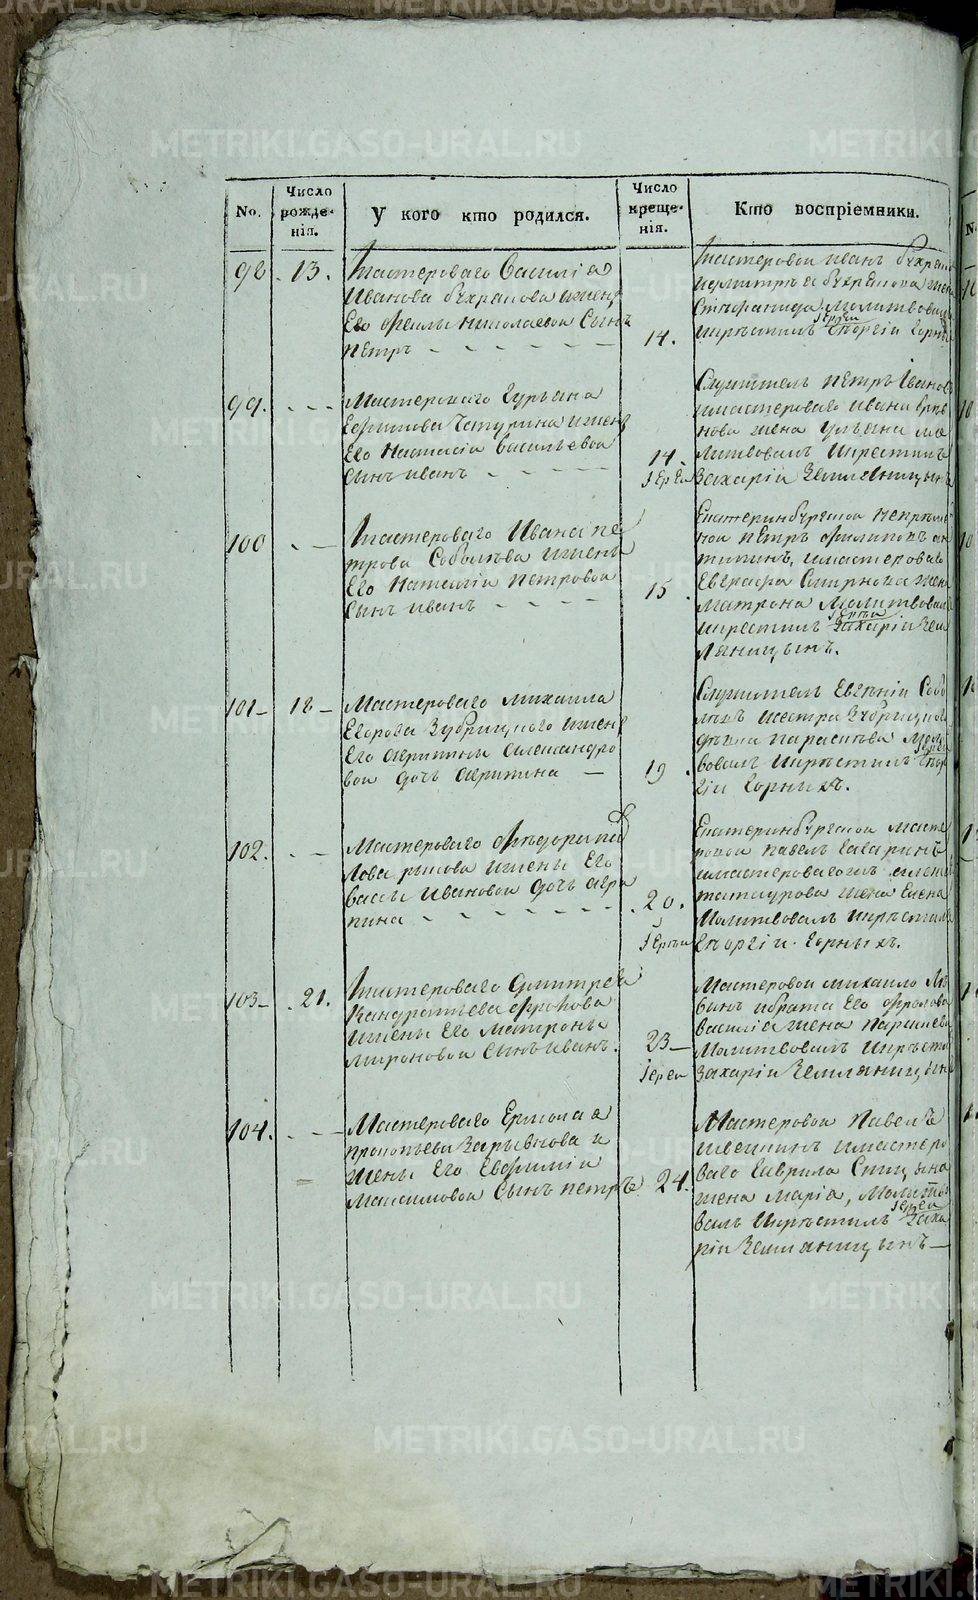 METRIKI.GASO-URAL.RU
No.
Число рожденія.
У кого кто родился.
Число крещенія.
Кто воспріемники.
98 13.
Мастероваго Василія
Иванова
Его Николаевой Сынъ
Петръ
14.
Мастеровой Иванъ
жена
Стефанида Молитвовалъ
икрестилъ Іерей Георгій Горныхъ
99.
Мастероваго Гурьяна
Ефимова Чатурина ижены
Его Настасіи Васильевой
Сынъ Иванъ
14.
Іерей
Служитель Петръ Іванов
имастероваго Ивана
нова жена Ульяна Мо
литвовалъ икрестилъ
Захарій Земляницынъ
100
Мастероваго Ивана Пе
трова ижены
Его Наталіи Петровой
Сынъ Иванъ
15.
Екатеринбургской
ной Петръ Филиповъ ан
типинъ, имастероваго
Евграфа Смирнова жена
Матрона Молитвовалъ
икрестилъ Іерей Захарій Зем
ляницынъ.
101 18
Мастероваго Михаила
Егорова Зубрицкого ижены
Его Акрипины Александро
вой дочь Акрипина
19.
Служитель Евгеній Собо
левъ исестра Зубрицкого
Парасковья Молит
вовалъ икрестилъ Іерей Геор
гій Горныхъ.
102.
Мастероваго Федора Пав
лова рыкова ижены Его
Васы Ивановой дочь Акри
пина
20.
Іерей
Екатеринбургской Масте
ровой Павелъ Гагаринъ
имастероваго
татаурова жена Елена
Молитвовалъ икрестилъ
Георгій Горныхъ.
103 21.
Мастероваго Дмитрея
Кандратьева Фролова
ижены Его Матроны
Мироновой Сынъ Иванъ.
23
Іерей
Мастеровой Михайло
ибрата Его Фролова
Василія жена
Молитвовалъ икрести
Захарій Земляницынъ
104.
Мастероваго Ермолая
Прокопьева Зарывнова и
жены Его Евфиміи
Максимовой Сынъ Петръ
24.
Мастеровой Павелъ
имастеро
ваго Гаврила Спицына
жена Марія, Молитво
валъ икрестилъ Іерей Заха
рій Земляницынъ